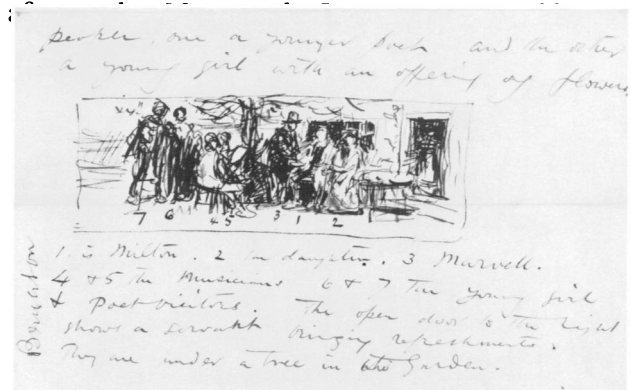 people, one a younger poet and the other
a young girl with an offering of flowers,
7 6 4 5 3 1 2
1 is Milton. 2 his daughter. 3 Marvell.
4 & 5 the Musicians 6 & 7 the young girl
& Poet-visitors. The open door to the right
shows a servant bringing refreshments.
They are under a tree in the Garden.
Boughton